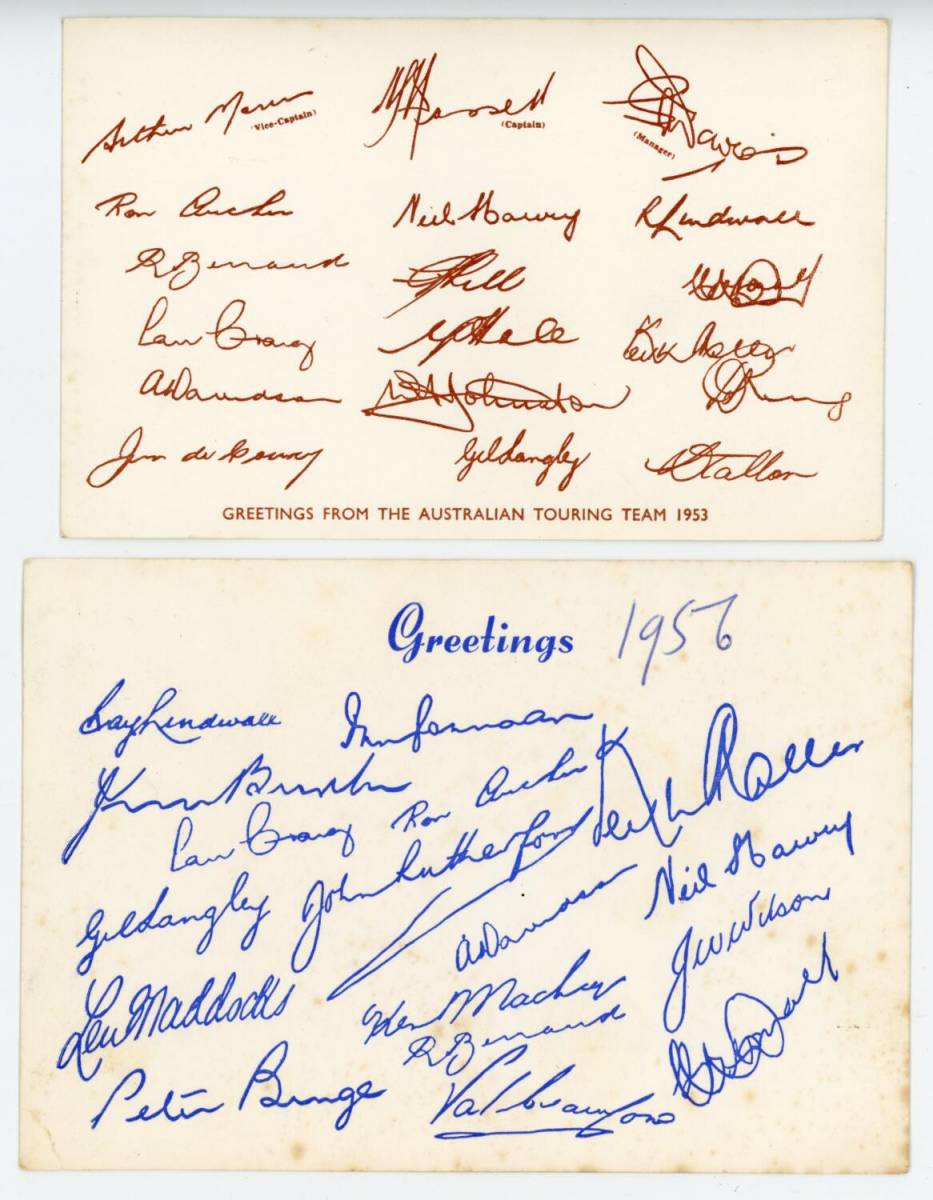 Arthur Morris (Vice-Captain) A L Hassett (Captain) G A Davies (Manager)
Ron Archer Neil Harvey R Lindwall
R Benaud J C Hill C McDonald
Ian Craig G B Hole Keith Miller
A K Davidson W A Johnston D Ring
Jim de Courcy Gil Langley D Tallon
GREETINGS FROM THE AUSTRALIAN TOURING TEAM 1953
Greetings 1956
Ray Lindwall Ian Johnson
Jim Burke
Ian Craig Ron Archer Keith Miller
Gil Langley John Rutherford Neil Harvey
A K Davidson J W Wilson
Len Maddocks Ken Mackay
R Benaud
Peter Burge Pat Crawford C McDonald